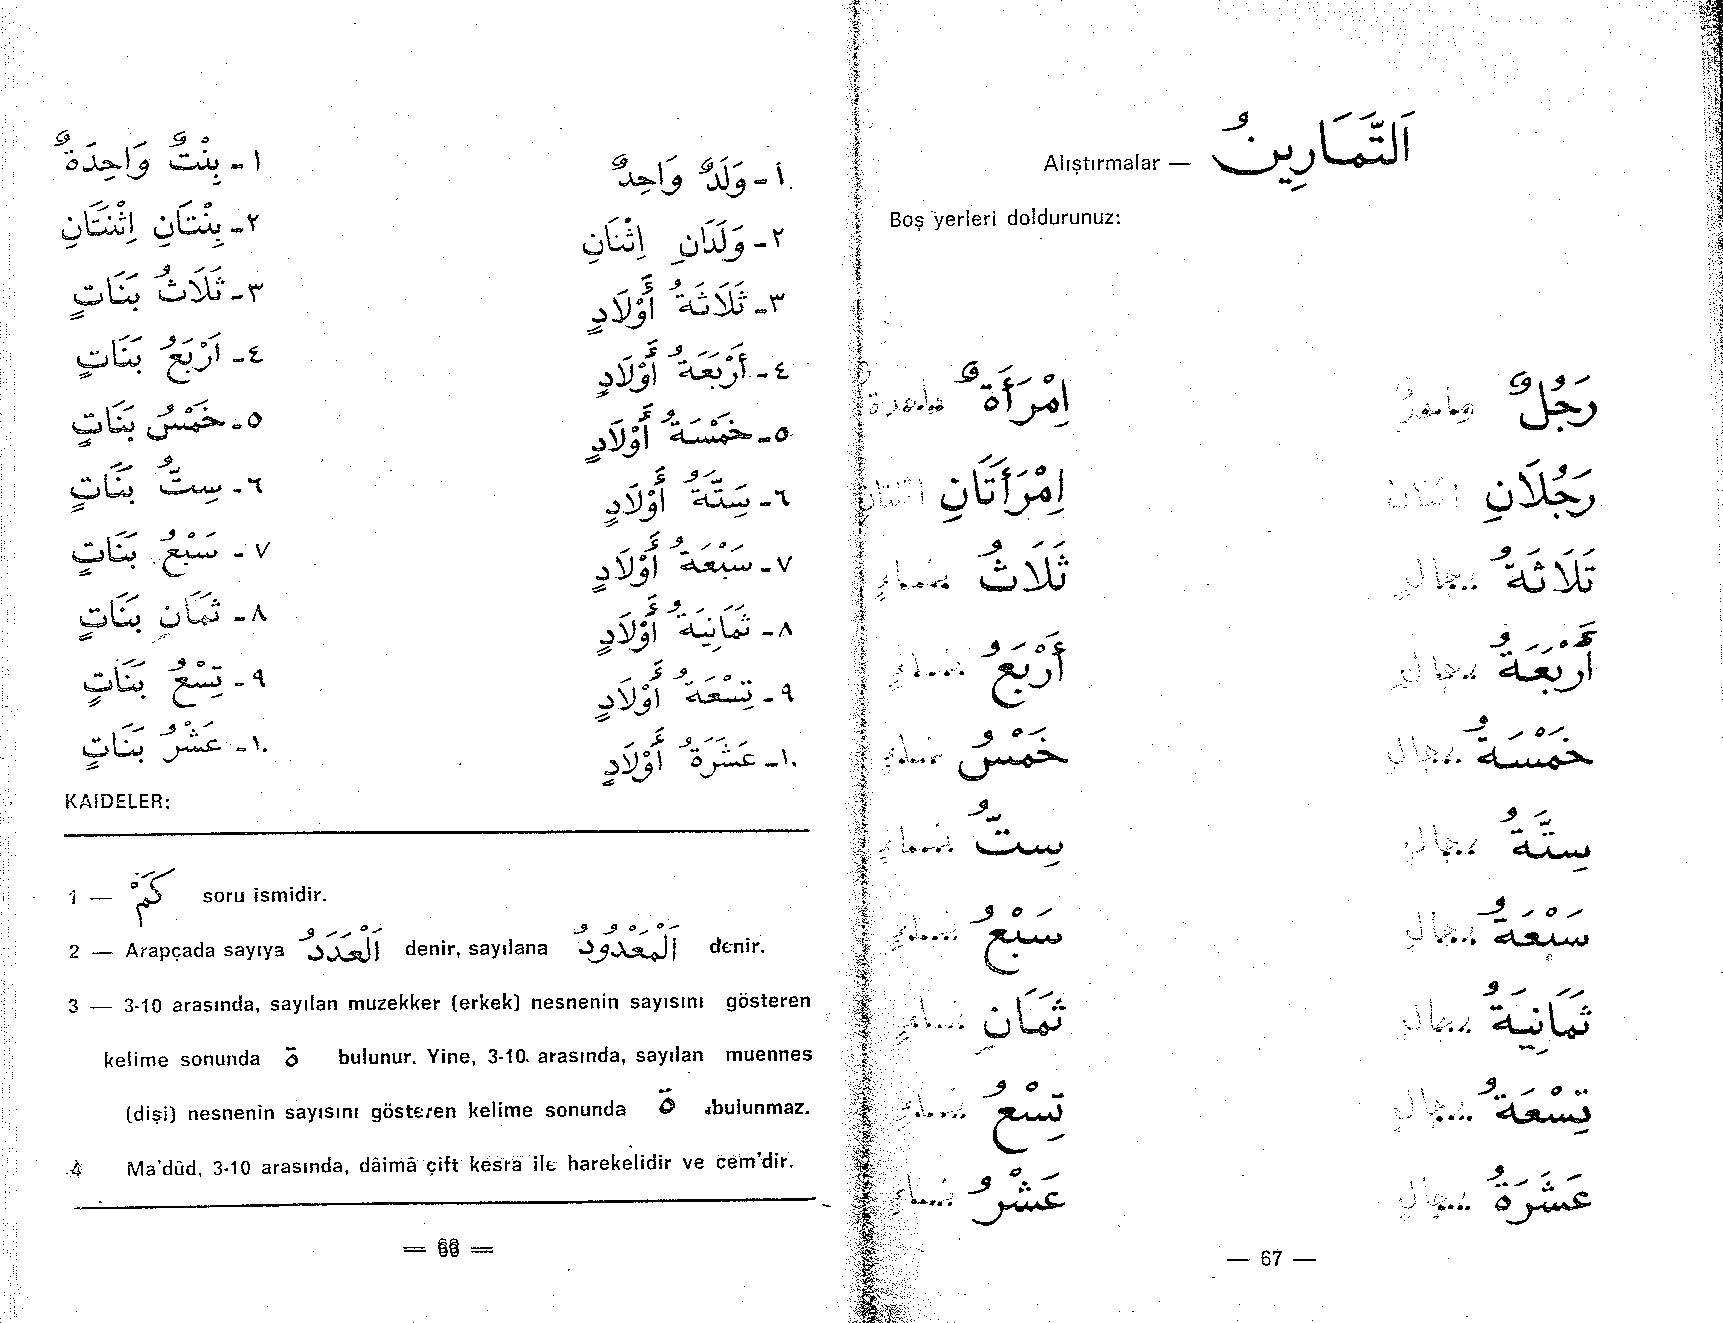 ١ - وَلَدٌ وَاحِدٌ
٢ - وَلَدَانِ اِثْنَانِ
٣ - ثَلَاثَةُ أَوْلَادٍ
٤ - أَرْبَعَةُ أَوْلَادٍ
٥ - خَمْسَةُ أَوْلَادٍ
٦ - سِتَّةُ أَوْلَادٍ
٧ - سَبْعَةُ أَوْلَادٍ
٨ - ثَمَانِيَةُ أَوْلَادٍ
٩ - تِسْعَةُ أَوْلَادٍ
١٠ - عَشَرَةُ أَوْلَادٍ
١ - بِنْتٌ وَاحِدَةٌ
٢ - بِنْتَانِ اِثْنَتَانِ
٣ - ثَلَاثُ بَنَاتٍ
٤ - اَرْبَعُ بَنَاتٍ
٥ - خَمْسُ بَنَاتٍ
٦ - سِتُّ بَنَاتٍ
٧ - سَبْعُ بَنَاتٍ
٨ - ثَمَانِ بَنَاتٍ
٩ - تِسْعُ بَنَاتٍ
١٠ - عَشْرُ بَنَاتٍ
KAİDELER:
1 — كَمْ soru ismidir.
2 — Arapçada sayıya اَلْعَدَدُ denir, sayılana اَلْمَعْدُودُ denir.
3 — 3-10 arasında, sayılan muzekker (erkek) nesnenin sayısını gösteren
kelime sonunda ة bulunur. Yine, 3-10. arasında, sayılan muennes
(dişi) nesnenin sayısını gösteren kelime sonunda ة bulunmaz.
4 Ma'dûd, 3-10 arasında, dâimâ çift kesra ile harekelidir ve cem'dir.
— 66 —
Alıştırmalar — اَلتَّمَارِينُ
Boş yerleri doldurunuz:
رَجُلٌ
رَجُلَانِ
ثَلَاثَةُ
أَرْبَعَةُ
خَمْسَةُ
سِتَّةُ
سَبْعَةُ
ثَمَانِيَةُ
تِسْعَةُ
عَشَرَةُ
اِمْرَأَةٌ
اِمْرَأَتَانِ
ثَلَاثُ
أَرْبَعُ
خَمْسُ
سِتُّ
سَبْعُ
ثَمَانِ
تِسْعُ
عَشْرُ
— 67 —